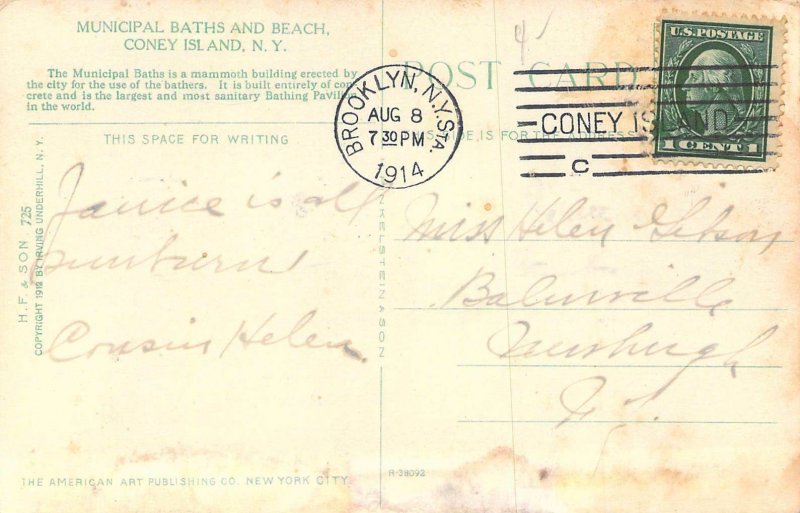 MUNICIPAL BATHS AND BEACH,
CONEY ISLAND, N. Y.
The Municipal Baths is a mammoth building erected by
the city for the use of the bathers. It is built entirely of con-
crete and is the largest and most sanitary Bathing Pavilion
in the world.
POST CARD
BROOKLYN, N.Y. STA.
AUG 8
7 30 PM
1914
CONEY ISLAND
C
U.S. POSTAGE
1 CENT 1
THIS SPACE FOR WRITING
THIS SIDE IS FOR THE ADDRESS
Janice is all
sunburnt
Cousin Helen
Miss Helen Gibson
Newburgh
H. F. & SON 725
COPYRIGHT 1912 BY IRVING UNDERHILL, N. Y.
THE AMERICAN ART PUBLISHING CO. NEW YORK CITY
R-38092